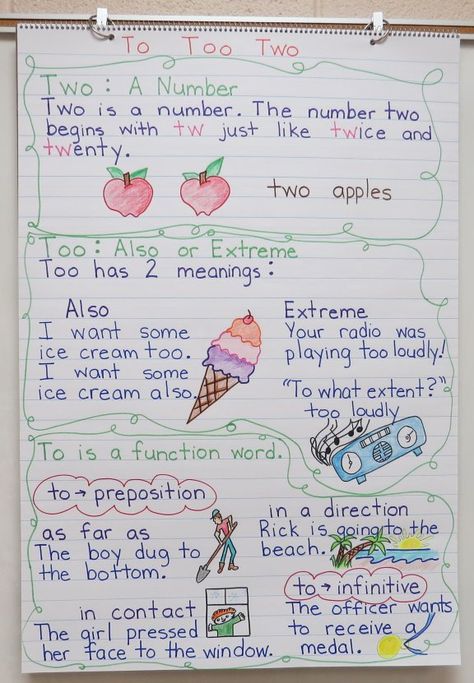 To Too Two
Two : A Number
Two is a number. The number two
begins with tw just like twice and
twenty.
two apples
Too : Also or Extreme
Too has 2 meanings :
Also
I want some
ice cream too.
I want some
ice cream also.
Extreme
Your radio was
playing too loudly!
"To what extent?"
too loudly
To is a function word.
to → preposition
as far as
The boy dug to
the bottom.
in contact
The girl pressed
her face to the window.
in a direction
Rick is going to the
beach.
to → infinitive
The officer wants
to receive a
medal.